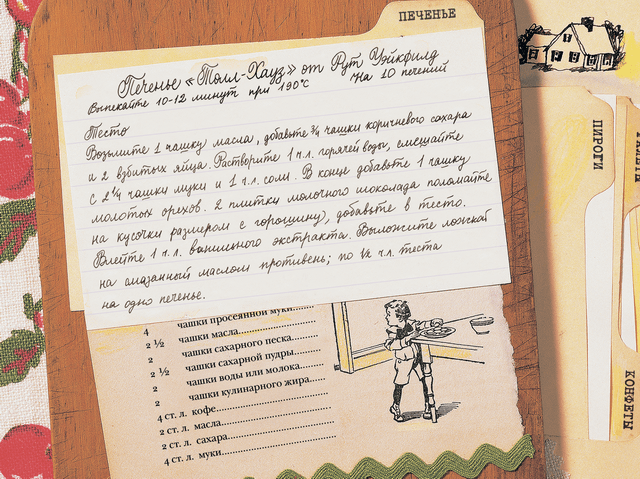 ПЕЧЕНЬЕ
Печенье «Толл-Хауз» от Рут Уэйкфилд
Выпекайте 10-12 минут при 190°C На 10 печений
Тесто
Возьмите 1 чашку масла, добавьте 3/4 чашки коричневого сахара
и 2 взбитых яйца. Растворите 1 ч.л. горячей воды, смешайте
с 2 1/4 чашки муки и 1 ч.л. соли. В конце добавьте 1 чашку
молотых орехов. 2 плитки молочного шоколада поломайте
на кусочки размером с горошину, добавьте в тесто.
Влейте 1 ч.л. ванильного экстракта. Выложите ложкой
на смазанный маслом противень; по 1/2 ч.л. теста
на одно печенье.
4 чашки просеянной муки
2 1/2 чашки масла
2 чашки сахарного песка
2 1/2 чашки сахарной пудры
2 чашки воды или молока
2 чашки кулинарного жира
4 ст. л. кофе
2 ст. л. масла
2 ст. л. сахара
4 ст. л. муки
ПИРОГИ
КОНФЕТЫ